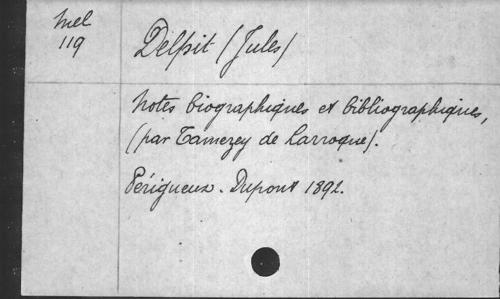 Mel
119
Delpit (Jules)
Notes biographiques et bibliographiques,
(par Tamezey de Larroque).
Périgueux. Dupont 1892.